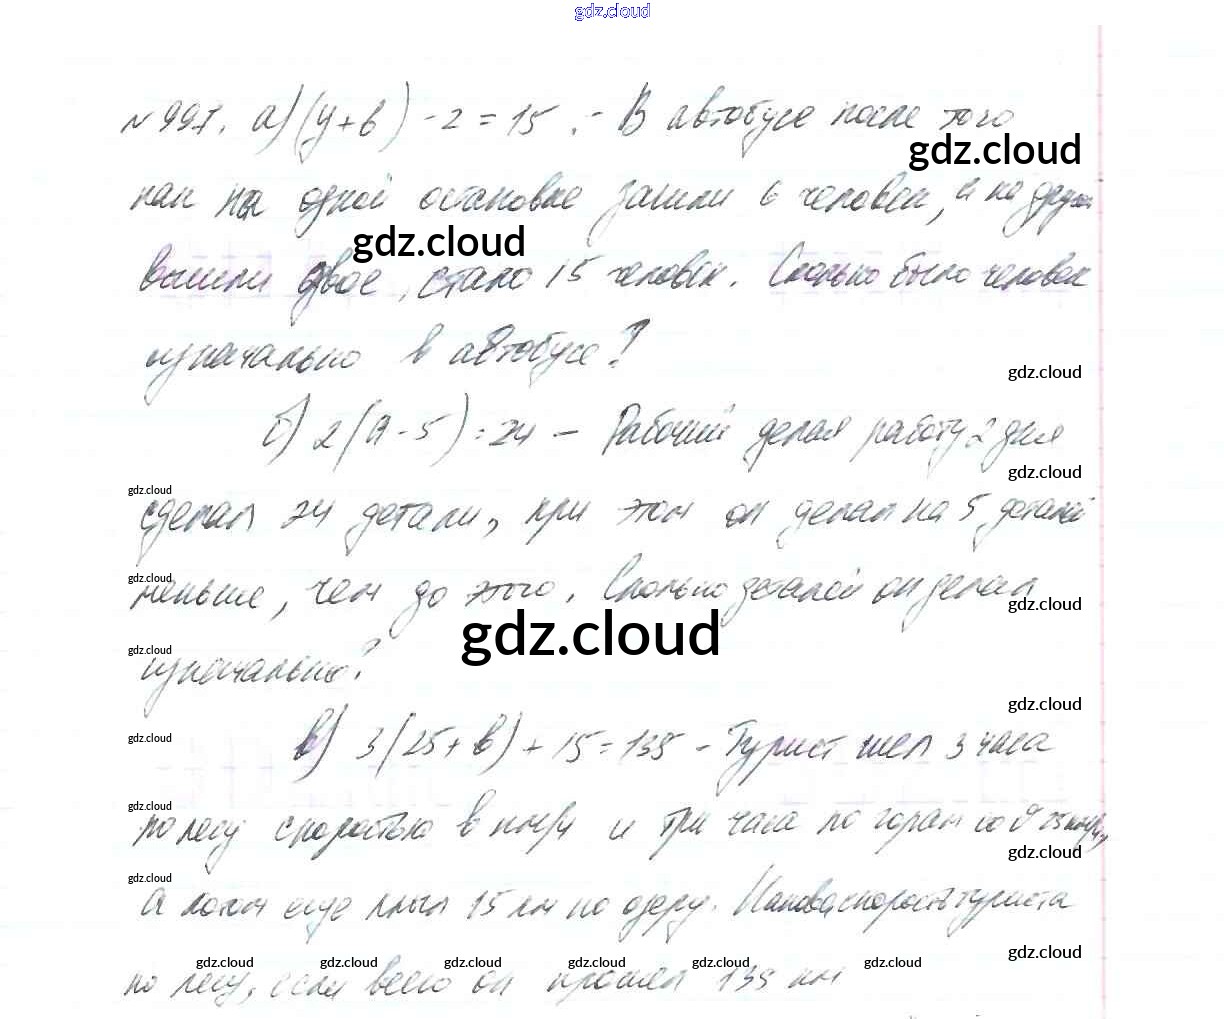 gdz.cloud
№ 997. а) (y+6) - 2 = 15. - В автобусе после того
gdz.cloud
как на одной остановке зашли 6 человек, и на другой
gdz.cloud
вышли двое, стало 15 человек. Сколько было человек
изначально в автобусе?
gdz.cloud
б) 2(A-5)=24 - Рабочий делая работу 2 дня
gdz.cloud
gdz.cloud
сделал 24 детали, при этом он делал на 5 деталей
gdz.cloud
меньше, чем до этого. Сколько деталей он делал
gdz.cloud
gdz.cloud
gdz.cloud
изначально?
gdz.cloud
в) 3(25+в)+15=135 - Турист шел 3 часа
gdz.cloud
gdz.cloud
по лесу скоростью в км/ч и три часа по горам со 25 км/ч,
gdz.cloud
gdz.cloud
а потом еще плыл 15 км по озеру. Какова скорость туриста
gdz.cloud
gdz.cloud gdz.cloud gdz.cloud gdz.cloud gdz.cloud gdz.cloud
по лесу, если всего он прошел 135 км